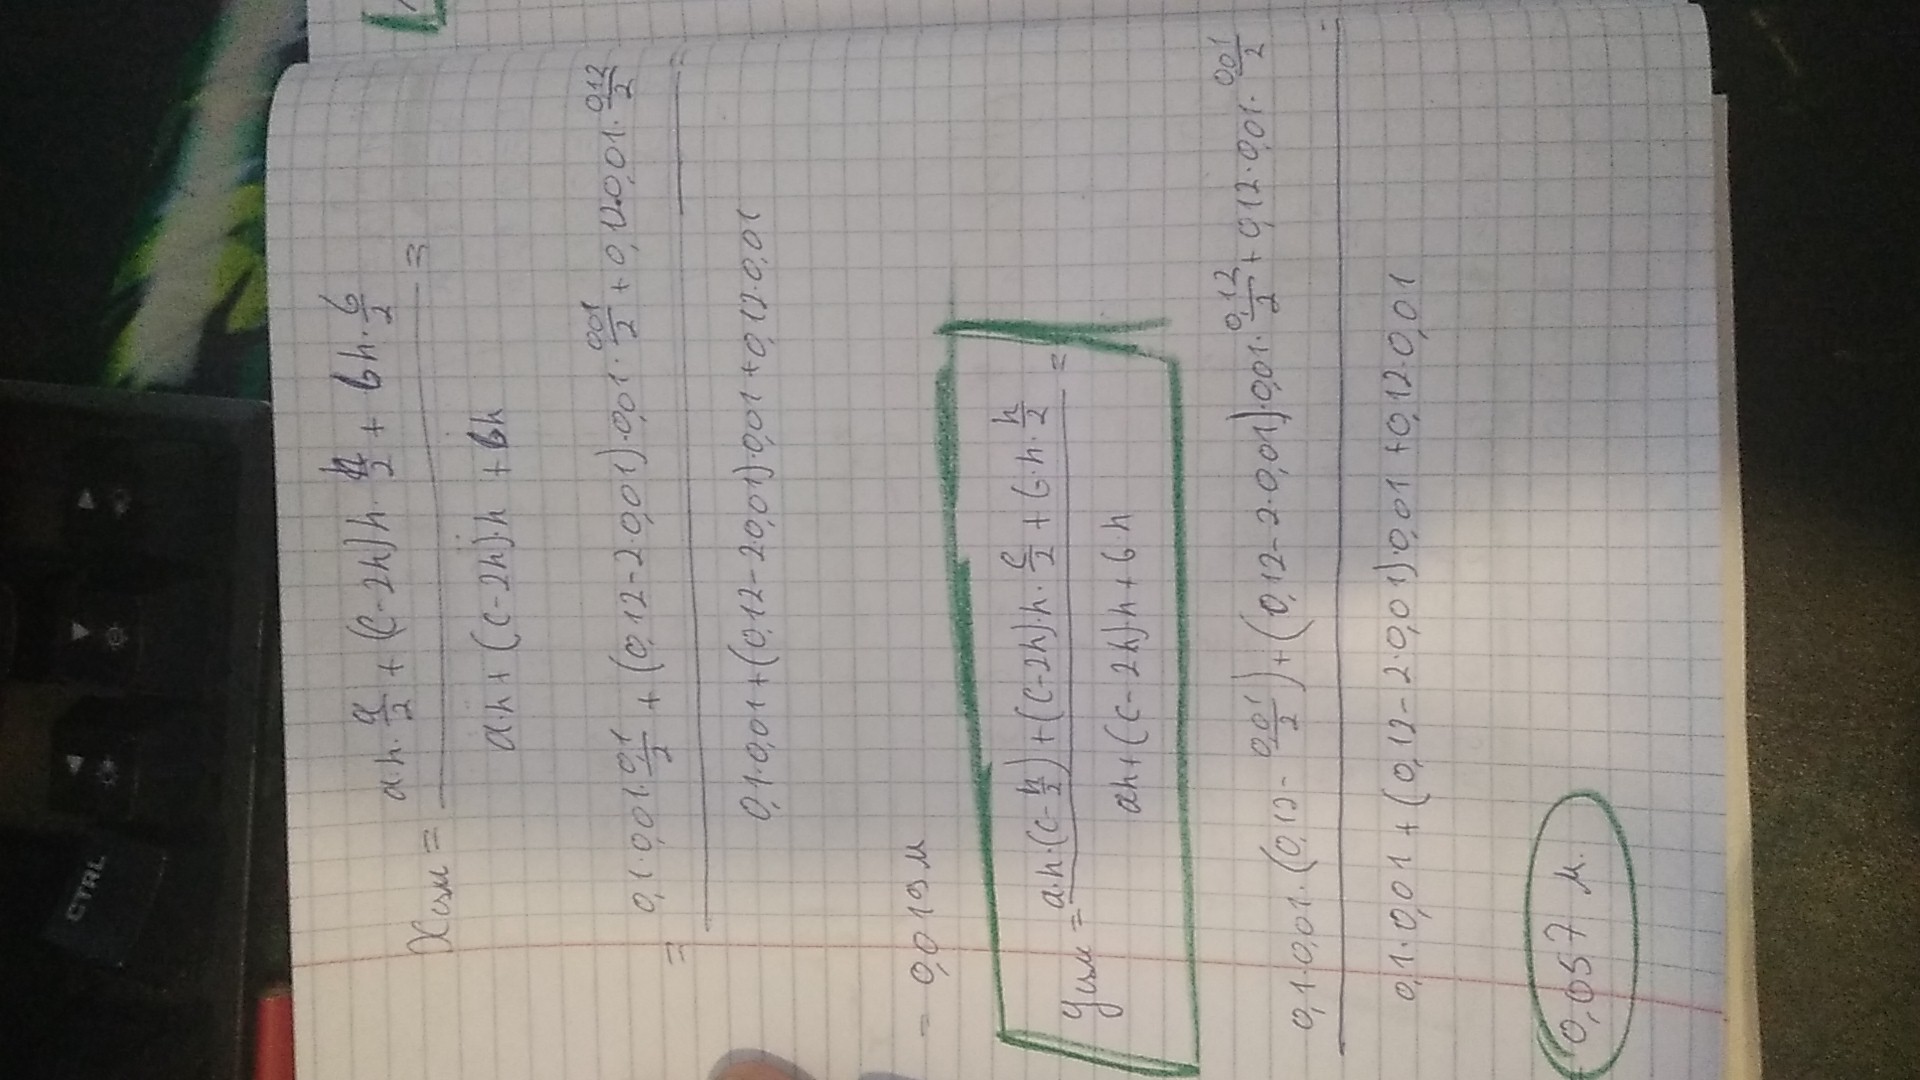 CTRL
Xцм = (a·h·a/2 + (c-2h)h·h/2 + bh·b/2) / (a·h + (c-2h)·h + bh) =
= (0,1·0,01·0,1/2 + (0,12-2·0,01)·0,01·0,01/2 + 0,12·0,01·0,12/2) / (0,1·0,01+(0,12-2·0,01)·0,01+0,12·0,01) =
= 0,019 м
yцм = (a·h·(c-h/2)+(c-2h)·h·c/2+b·h·h/2) / (ah+(c-2h)·h+b·h) =
(0,1·0,01·(0,12-0,01/2)+(0,12-2·0,01)·0,01·0,12/2+0,12·0,01·0,01/2) / (0,1·0,01+(0,12-2·0,01)·0,01+0,12·0,01) =
= 0,057 м.